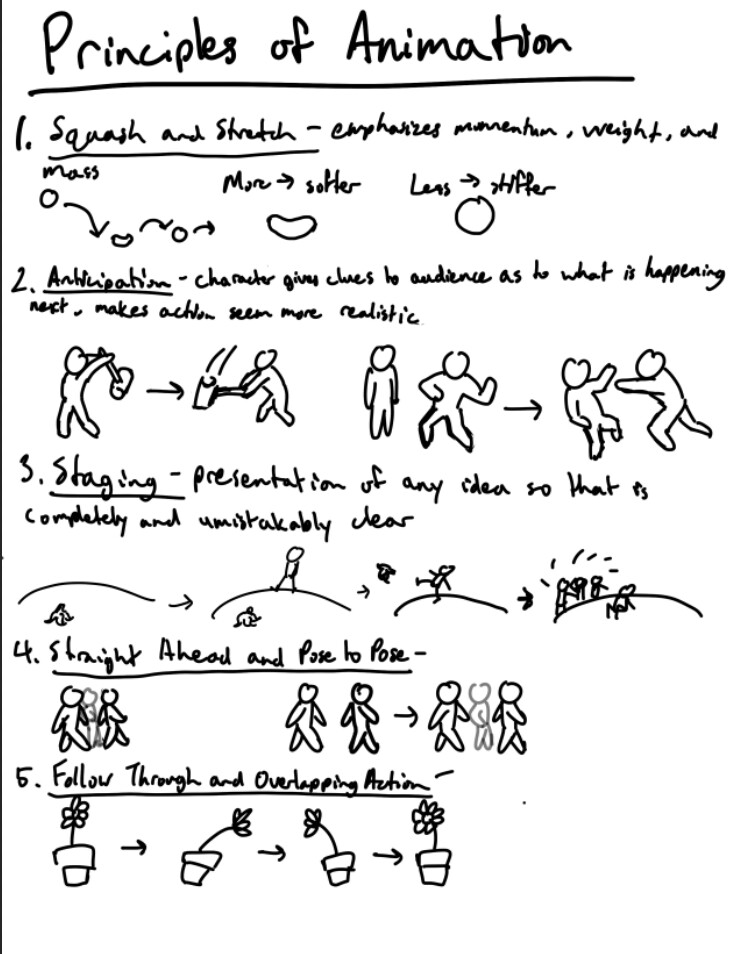 Principles of Animation
1. Squash and Stretch - emphasizes momentum, weight, and
mass
More → softer
Less → stiffer
2. Anticipation - character gives clues to audience as to what is happening
next, makes action seem more realistic
3. Staging - presentation of any idea so that is
completely and umistakably clear
4. Straight Ahead and Pose to Pose -
5. Follow Through and Overlapping Action -